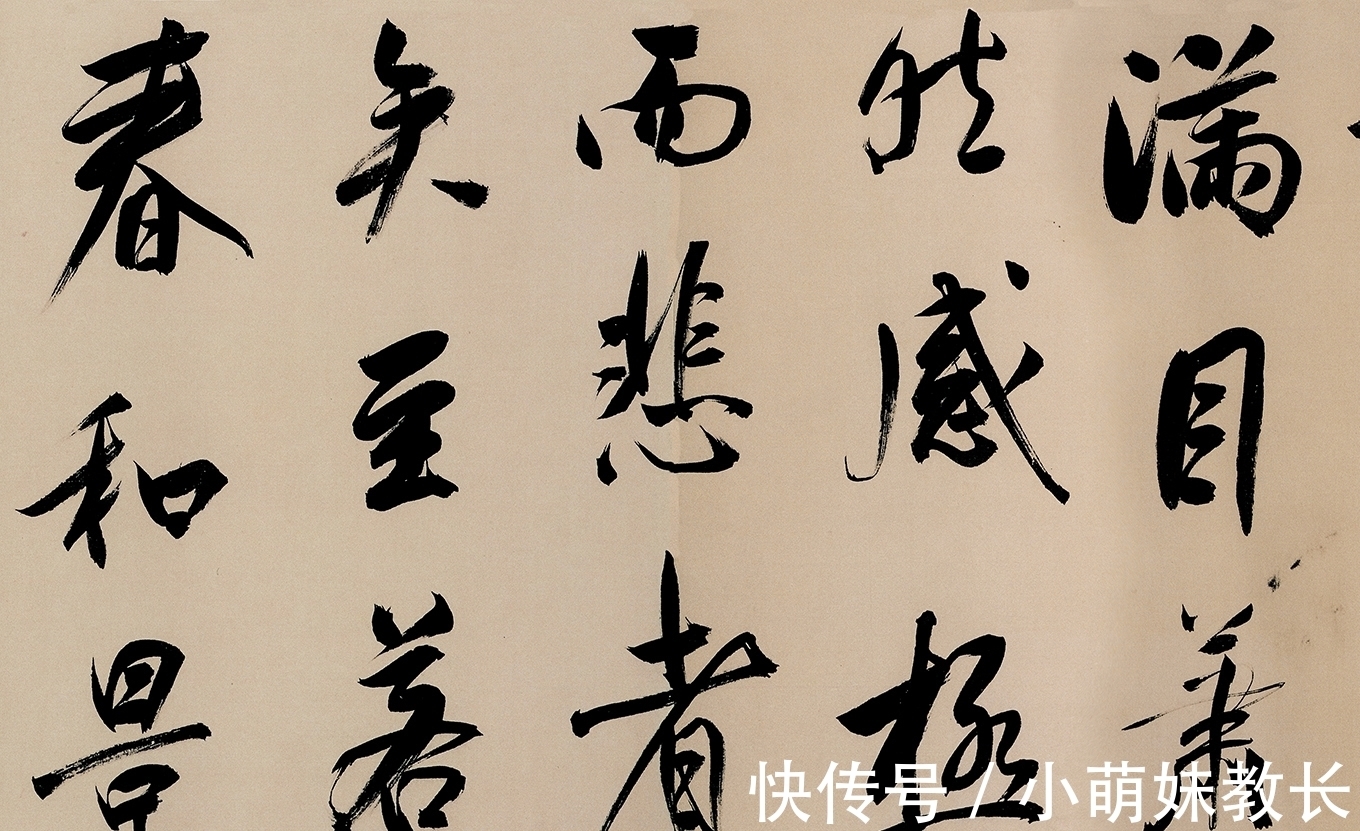 满目萧
然感极
而悲者
矣至若
春和景
快传号 / 小萌妹教长